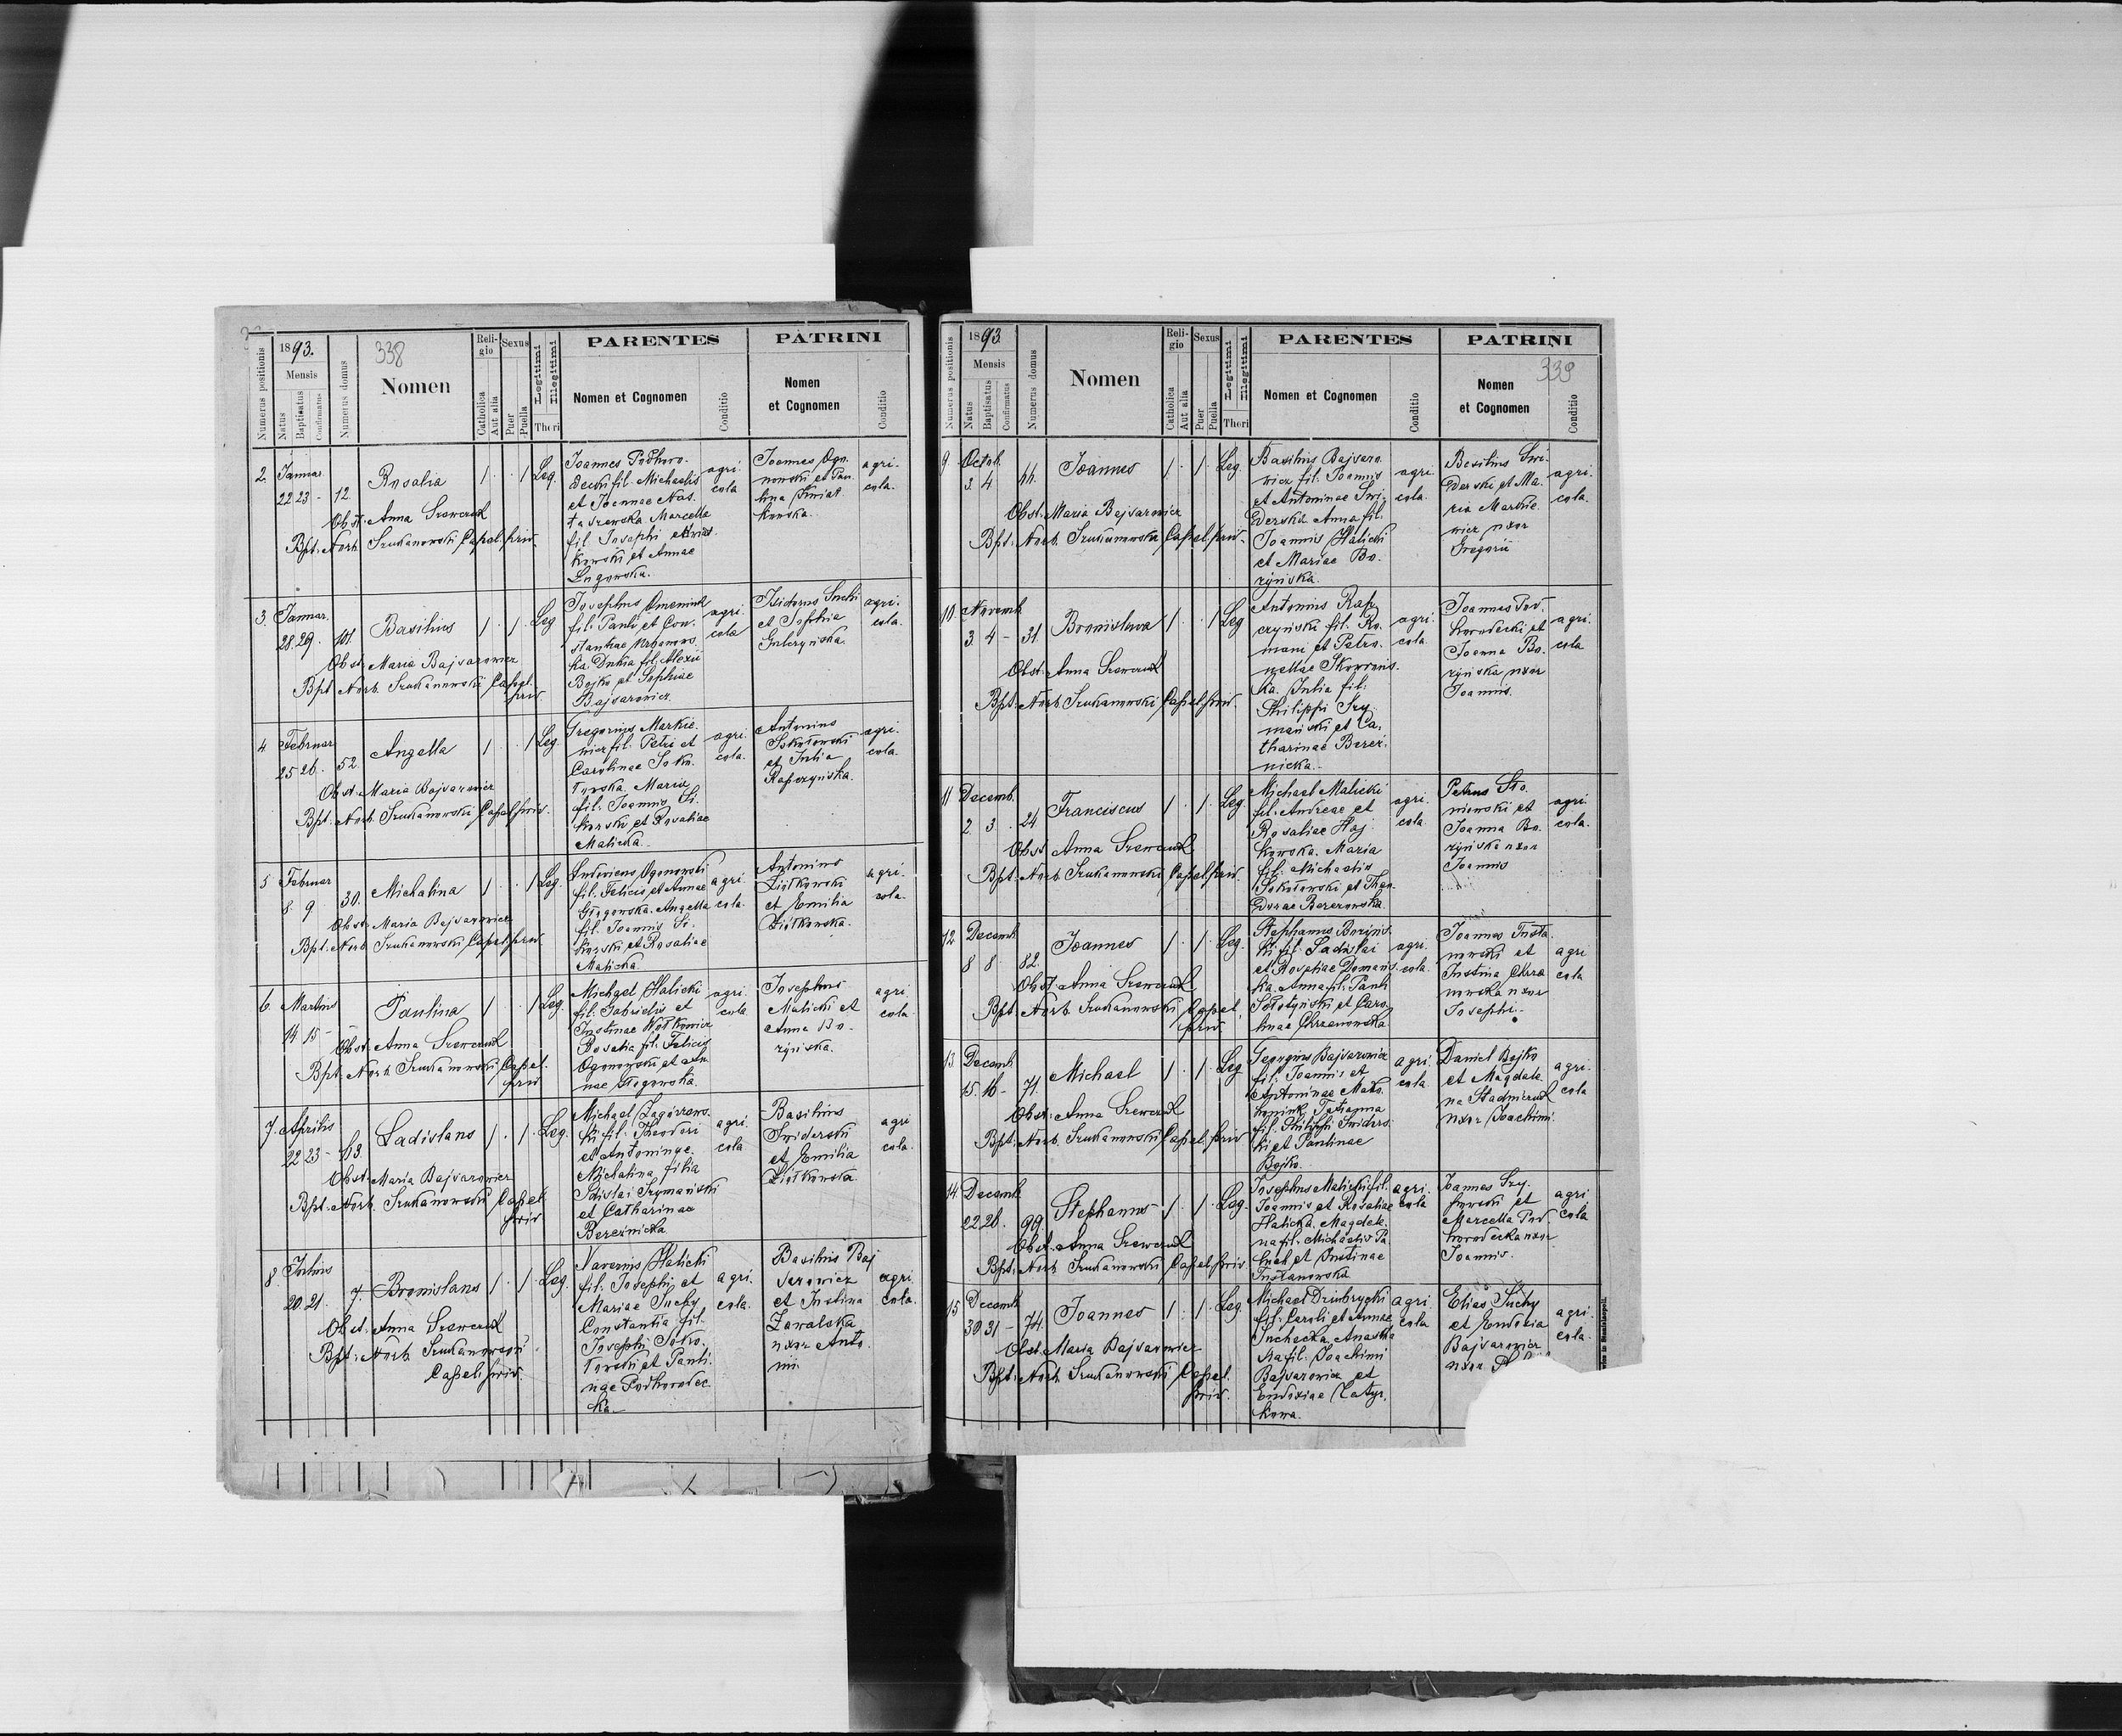 1893.
338
Numerus positionis
Mensis
Natus
Baptisatus
Confirmatus
Numerus domus
Nomen
Religio
Catholica
Aut alia
Sexus
Puer
Puella
Legitimi
Illegitimi
Thori
PARENTES
Nomen et Cognomen
Conditio
PATRINI
Nomen
et Cognomen
Conditio
2. Januar 22 23 - 12. Rosalia 1 · · 1 Leg.
Obst. Anna Szewczuk
Bpt. Norb. Szukanowski Capel. priv.
Joannes Podhoro-
decki fil. Michaelis
et Joannae Nas-
taszewska. Marcella
fil. Josephi Kwiat-
kowski et Annae
agri-
cola
Joannes Ogo-
nowski et Pau-
lina Kwiat-
kowska.
agri-
cola.
3. Januar. 28. 29. 101. Basilius 1 · 1 · Leg
Obst. Maria Bajsarowicz
Bpt. Norb. Szukanowski Capel.
priv.
Josephus
fil. Pauli et Con-
stantiae Urbanows-
ka. fil. Alexii
Bojko et Sophiae
Bajsarowicz.
agri-
cola
Isidorus Suchi
et Sophia
agri-
cola.
4 Februar 25 26. 52. Angella 1 · · 1 Leg.
Obst. Maria Bajsarowicz
Bpt. Norb. Szukanowski Capel. priv.
Gregorius Markie-
wicz fil. Petri et
Carolinae Soko-
łowska. Maria
fil. Joannis Si-
korski et Rosaliae
Malicka.
agri-
cola.
Antonius
Sokołowski
et Julia
Rapczyńska.
agri-
cola.
5 Februar 8. 9 30. Michalina 1 · · 1 Leg.
Obst. Maria Bajsarowicz
Bpt. Norb. Szukanowski Capel. priv.
Ludovicus Ogonowski
fil. Felicis et Annae
Głogowska. Angella
fil. Joannis Si-
korski et Rosaliae
Malicka.
agri-
cola.
Antonius
Ziółkowski
et Emilia
Ziółkowska.
agri-
cola.
6. Martius 14 15 - Paulina 1 · · 1 Leg.
Obst. Anna Szewczuk
Bpt. Norb. Szukanowski Capel.
priv
Michael Halicki
fil. Gabrielis et
Justinae Wołkowicz
Rosalia fil. Felicis
Ogonowski et An-
nae Głogowska.
agri-
cola
Josephus
Malicki et
Anna Bo-
ryńska.
agri-
cola.
7. Aprilis 22 23 - 83. Ladislaus 1 · 1 · Leg.
Obst. Maria Bajsarowicz
Bpt. Norb. Szukanowski Capel.
priv
Michael Zagórzows-
ki fil. Theodori
et Antoninae.
Michalina filia
Szymański
et Catharinae
Bereźnicka
agri-
cola
Basilius
Swiderski
et Emilia
Ziółkowska
agri
cola.
8. Julius 20 21. 7. Bronislaus 1 · 1 · Leg.
Obst. Anna Szewczuk
Bpt. Norb. Szukanowski
Capel. priv.
Halicki
fil. Josephi et
Mariae Suchy
Constantia fil.
Josephi Soko-
łowski et Pauli-
nae Podhorodec-
ka.
agri.
cola.
Basilius Baj
sarowicz
et Justina
Zawalska
uxor Anto-
nii
agri.
cola.
1893
339
Numerus positionis
Mensis
Natus
Baptisatus
Confirmatus
Numerus domus
Nomen
Religio
Catholica
Aut alia
Sexus
Puer
Puella
Legitimi
Illegitimi
Thori
PARENTES
Nomen et Cognomen
Conditio
PATRINI
Nomen
et Cognomen
Conditio
9. Octob. 3. 4 44. Joannes 1 · 1 · Leg.
Obst. Maria Bajsarowicz
Bpt. Norb. Szukanowski Capel. priv.
Basilius Bajsaro-
wicz fil. Joannis
et Antoninae Swi-
derska. Anna fil.
Joannis Halicki
et Mariae Bo-
ryńska.
agri-
cola.
Basilius Swi-
derski et Ma-
ria Markie-
wicz uxor
Gregorii
agri-
cola.
10. Novemb 3. 4 - 31. Bronislava 1 · · 1 Leg
Obst. Anna Szewczuk
Bpt. Norb. Szukanowski Capel. priv.
Antonius Rap-
czyński fil. Ro-
mani et Petro-
nellae Skowrońs-
ka. Julia fil.
Philippi Szy-
mański et Ca-
tharinae Bereź-
nicka.
agri-
cola.
Joannes Pod-
horodecki et
Joanna Bo-
ryńska uxor
Joannis.
agri-
cola
11 Decemb. 2 3. 24 Franciscus 1 · 1 · Leg.
Obst. Anna Szewczuk
Bpt. Norb. Szukanowski Capel. priv.
Michael Malicki
fil. Andreae et
Rosaliae Haj-
kowska. Maria
fil. Michaelis
Sokołowski et Theo-
dorae Berezowska.
agri-
cola
Petrus Sło-
niewski et
Joanna Bo-
ryńska uxor
Joannis
agri-
cola.
12 Decemb 8 8 82. Joannes 1 · 1 · Leg.
Obst. Anna Szewczuk
Bpt. Norb. Szukanowski Capel.
priv.
Stephanus Boryńs-
ki fil. Ladislai
et Rosaliae Domańs-
ka. Anna fil. Pauli
Sołotyński et Caro-
linae Chrzanowska
agri-
cola.
Joannes Tusta-
nowski et
Justina Chrza-
nowska uxor
Josephi.
agri
cola
13. Decemb 15. 16 - 71. Michael 1 · 1 · Leg
Obst. Anna Szewczuk
Bpt. Norb. Szukanowski Capel. priv
Georgius Bajsarowicz
fil. Joannis et
Antoninae
Tatianna
fil. Philippi Swiders-
ki et Paulinae
Bojko.
agri.
cola.
Daniel Bojko
et Magdale-
na Stadniczuk
uxor Joachimi.
agri-
cola
14 Decemb 22 26. 99. Stephanus 1 · 1 · Leg.
Obst. Anna Szewczuk
Bpt. Norb. Szukanowski Capel. priv
Josephus Malicki fil.
Joannis et Rosaliae
Halicka. Magdale-
na fil. Michaelis
et Justinae
Tustanowska
agri-
cola
Joannes Szy-
et
Marcella Pod-
horodecka uxor
Joannis.
agri
cola
15 Decemb 30 31 - 74. Joannes 1 · 1 · Leg.
Obst. Maria Bajsarowicz
Bpt. Norb. Szukanowski Capel.
priv.
Michael Dziubrycki
fil. Caroli et Annae
Suchecka. Anasta-
sia fil. Joachimi
Bajsarowicz et
Eudoxiae
agri
cola
Elias Suchy
et Eudoxia
Bajsarowicz
uxor
agri-
cola.